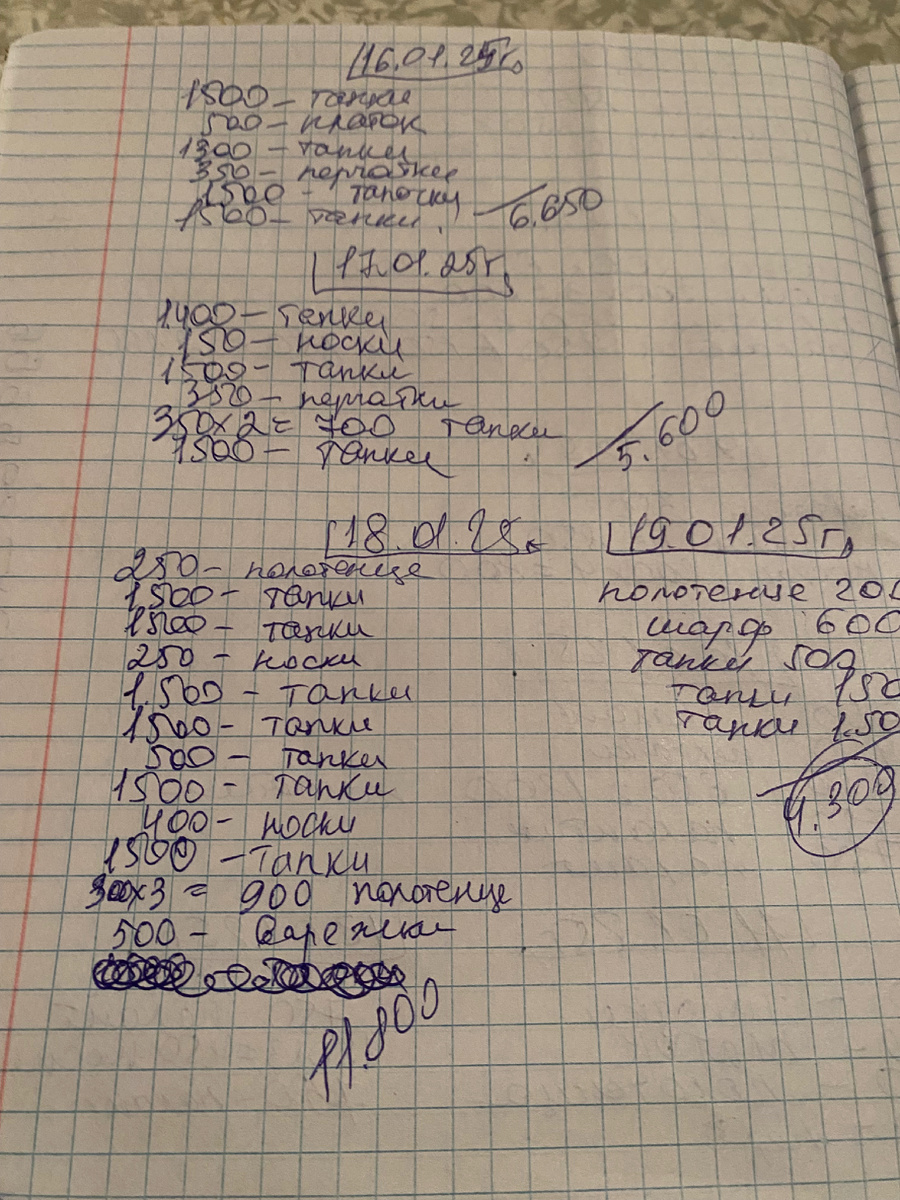 16.01.25г.
1500 – тапки
500 – платок
1300 – тапки
350 – перчатки
1500 – тапочки
1500 – тапки
6.650
17.01.25г.
1.400 – тапки
150 – носки
1500 – тапки
350 – перчатки
350х2 = 700 тапки
1500 – тапки
5.600
18.01.25г.
250 – полотенце
1500 – тапки
1500 – тапки
250 – носки
1.500 – тапки
1500 – тапки
500 – тапки
1500 – тапки
400 – носки
1500 – тапки
300х3 = 900 полотенце
500 – варежки
11.800
19.01.25г.
полотенце 200
шарф 600
тапки 500
тапки 150
тапки 1.50
4.300